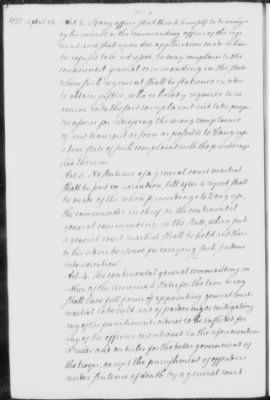 1777 April 14 Art. 2. If any officer shall think himself to be wronged
by his colonel or the commanding officer of the regi
ment and shall upon due application made to him
be refused to be redressed, he may complain to the
continental general commanding in the state
where such regiment shall be stationed in order
to obtain justice, who is hereby required to ex
amine into the said complaint and take proper
measures for redressing the wrong complained
of and transmit as soon as possible to Congress
a true state of such complaint with the proceedings
had thereon.
Art. 3. No sentence of a general court martial
shall be put in execution till after a report shall
be made of the whole proceedings to Congress,
the commander in chief or the continental
general commanding in the state, where such
a general court martial shall be held and their
or his orders be issued for carrying such sentence
into execution
Art. 4. The continental general commanding in
either of the american states for the time being
shall have full power of appointing general courts
martial to be held and of pardoning or mitigating
any of the punishments ordered to be inflicted for
any of the offences mentioned in the aforemention
articles for the better government of
the troops, except the punishment of offenders
under sentence of death by a general court